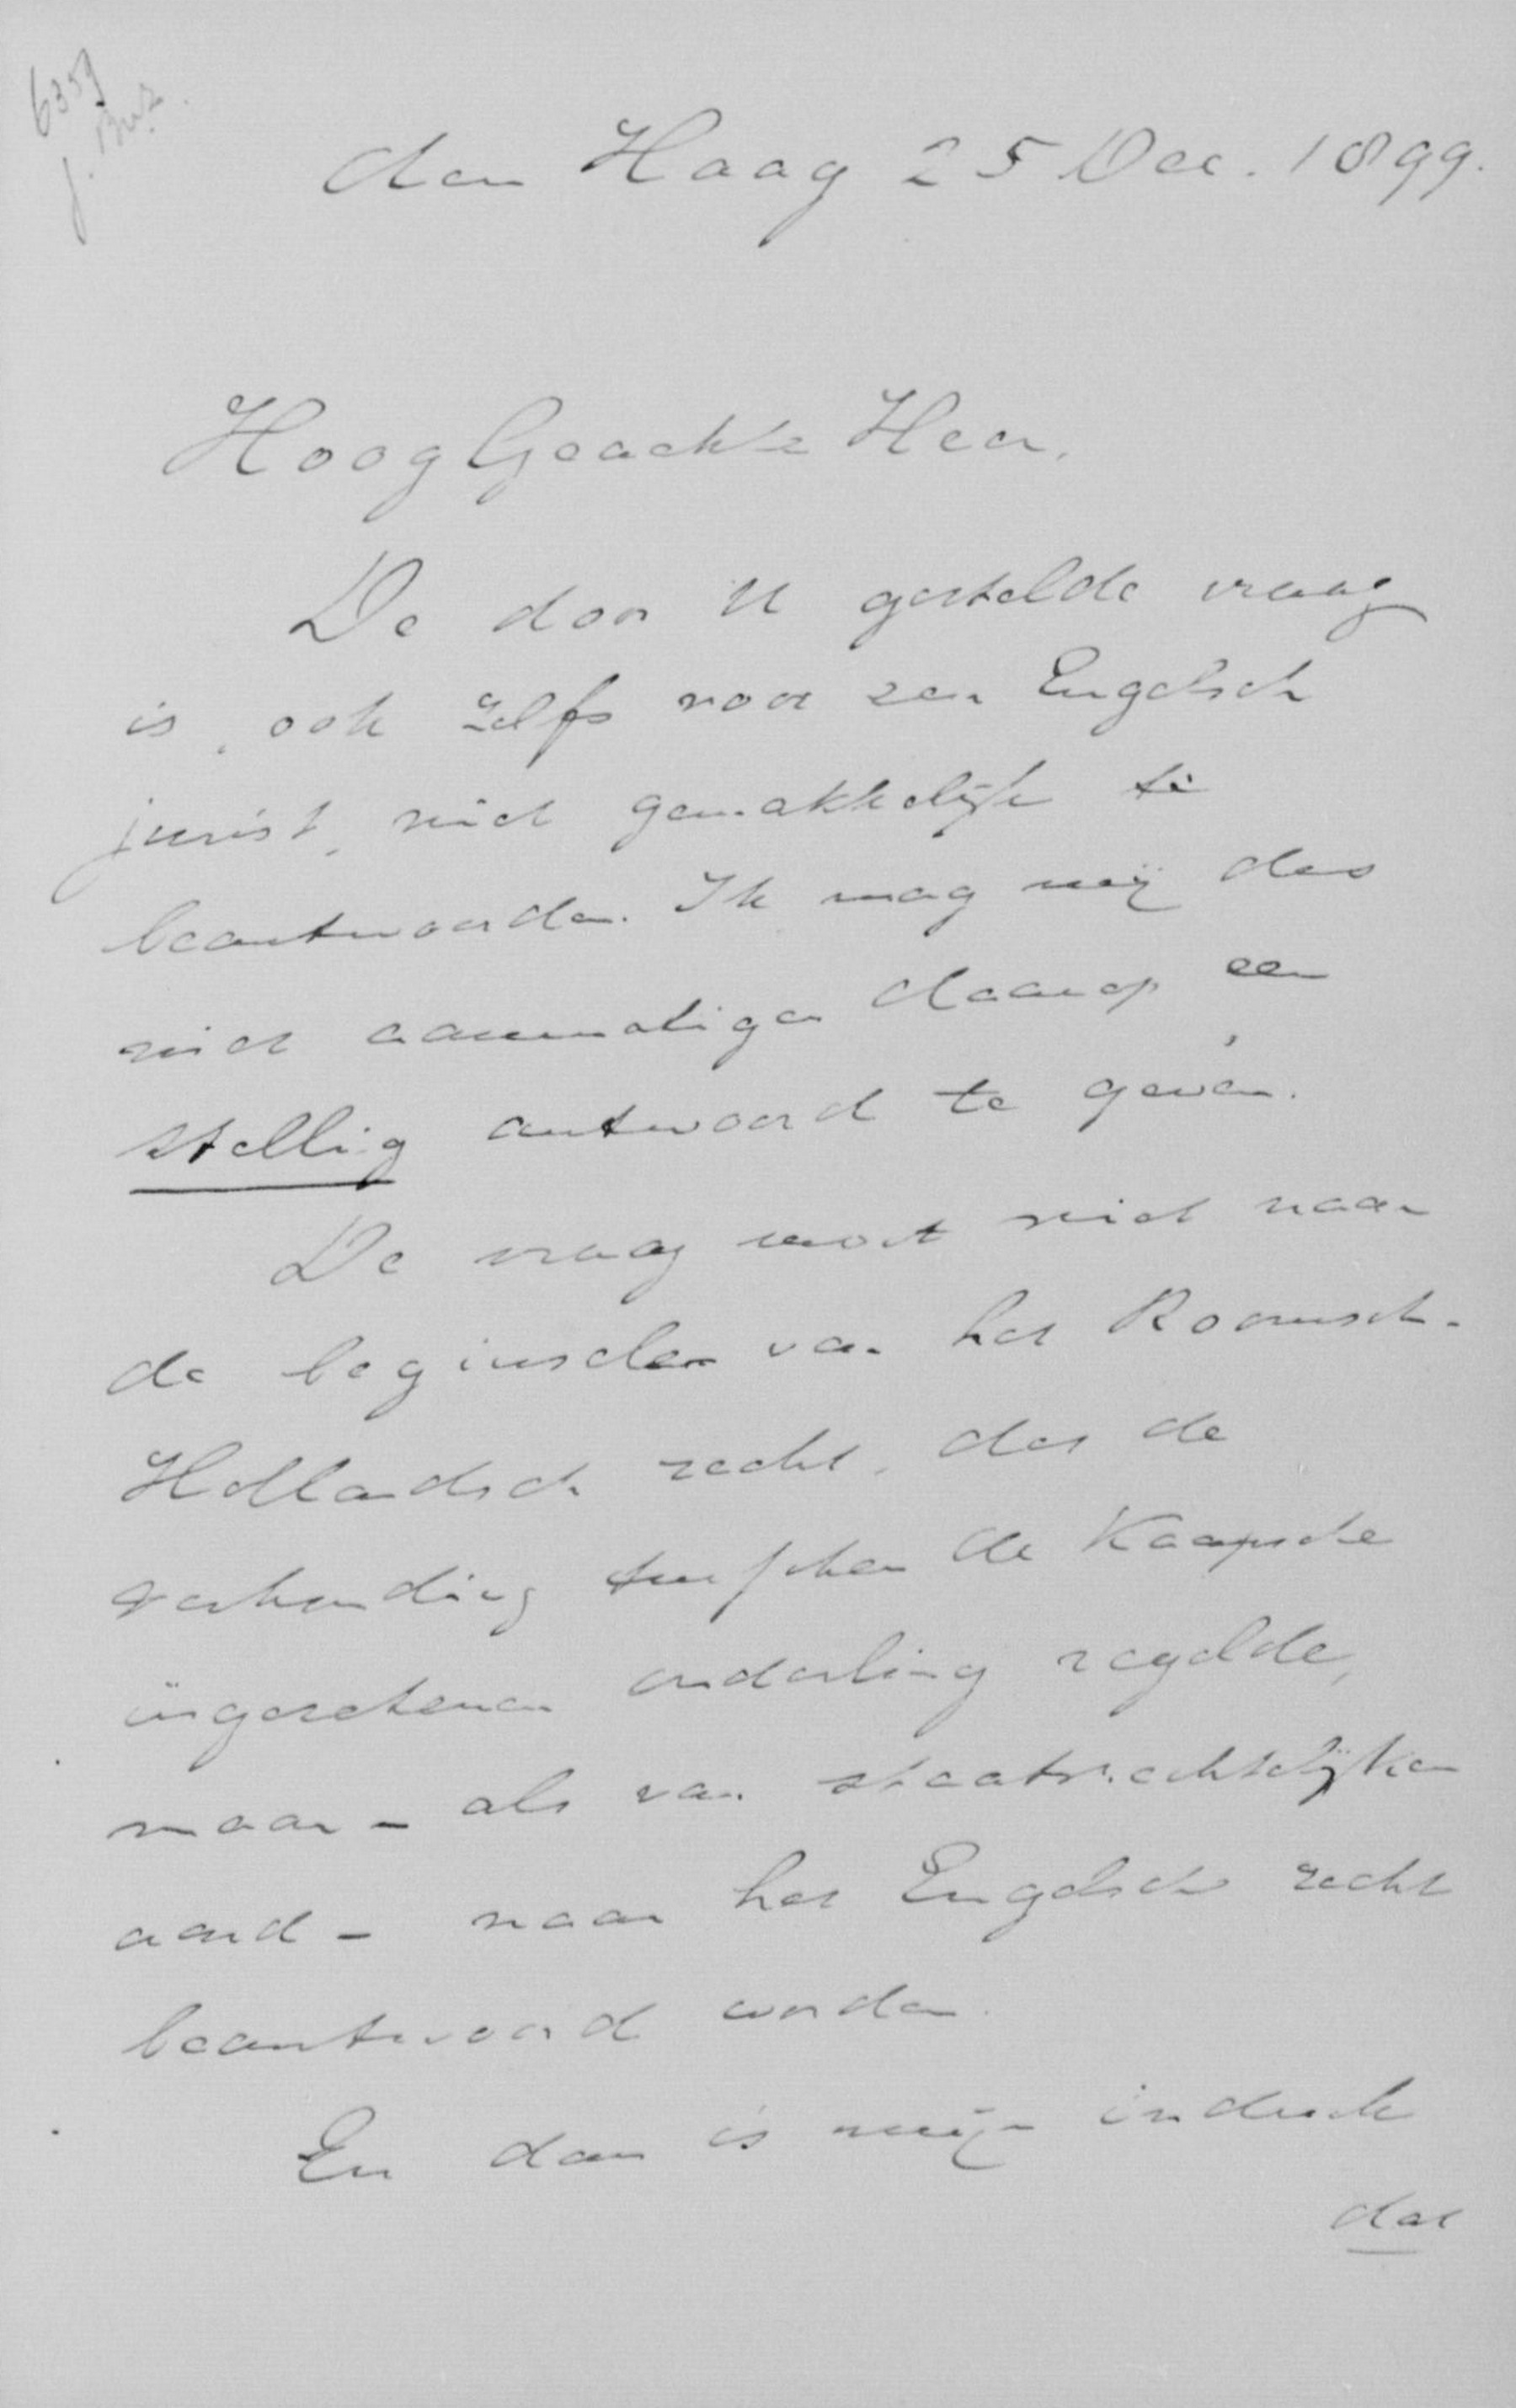 6359
den Haag 25 Dec. 1899.
HoogGeachte Heer,
De door U gestelde vraag
is, ook zelfs voor een Engelsch
jurist, niet gemakkelijk te
beantwoorden. Ik mag mij dus
niet aanmatigen daarop een
stellig antwoord te geven.
De vraag moet niet naar
de beginselen van het Roomsch-
Hollandsch recht, dat de
verhouding tusschen de Kaapsche
ingezetenen onderling regelde,
maar – als van staatsrechtelijken
aard – naar het Engelsch recht
beantwoord worden.
En dan is mijn indruk
dat